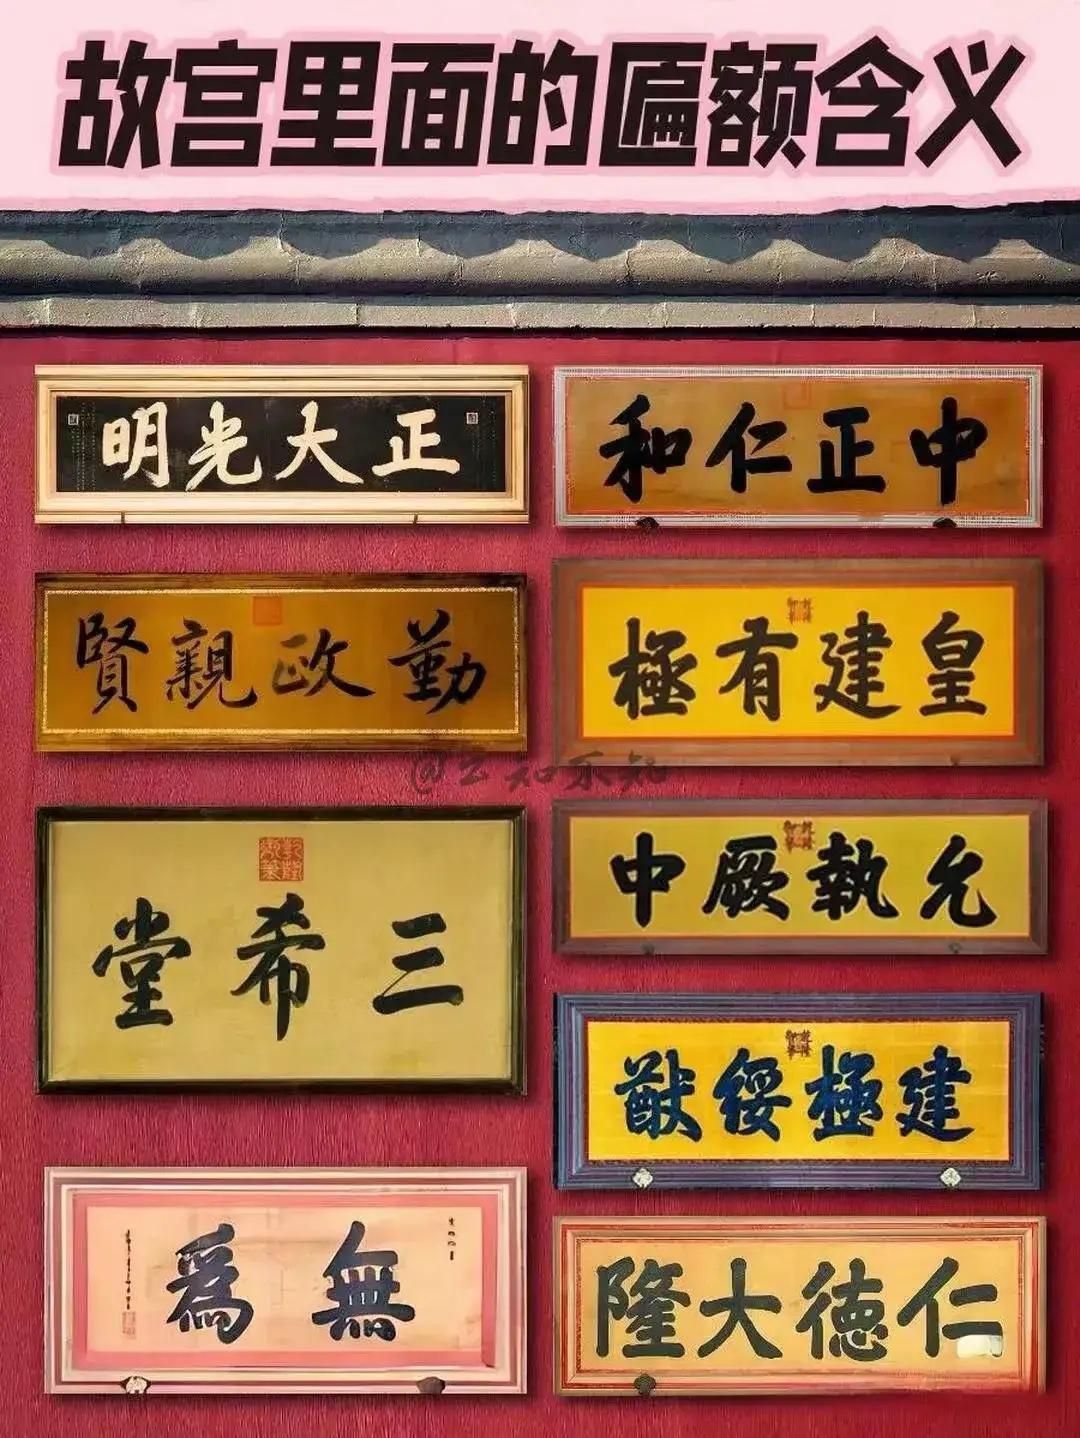 故宫里面的匾额含义
明光大正
和仁正中
賢親政勤
極有建皇
@云知乐知
堂希三
乾隆御筆
中厥執允
猷綏極建
為無
隆大德仁